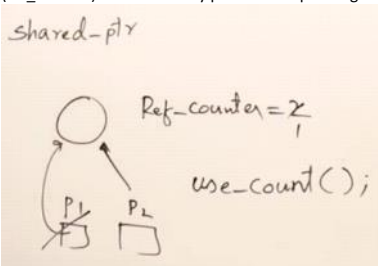 shared_ptr
Ref_counter = 2
1
use_count();
P1 P2